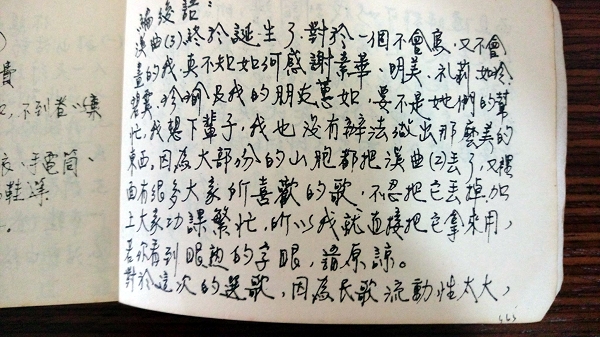 編後語：
漢曲(3)終於誕生了，對於一個不會寫，又不會
畫的我，真不知如何感謝素華、明美、礼莉、如玲、
碧雲、玲瑜及我的朋友蕙如，要不是她們的幫
忙，我想下輩子，我也沒有辦法做出那麼美的
東西。因為大部分的山胞都把漢曲(2)丟了，又裡
面有很多大家所喜歡的歌，不忍把它丟掉，加
上大家功課繁忙，所以我就直接把它拿來用，
若你看到眼熟的字眼，請原諒。
對於這次的選歌，因為民歌流動性太大，
費
不到卷
手電筒、
鞋